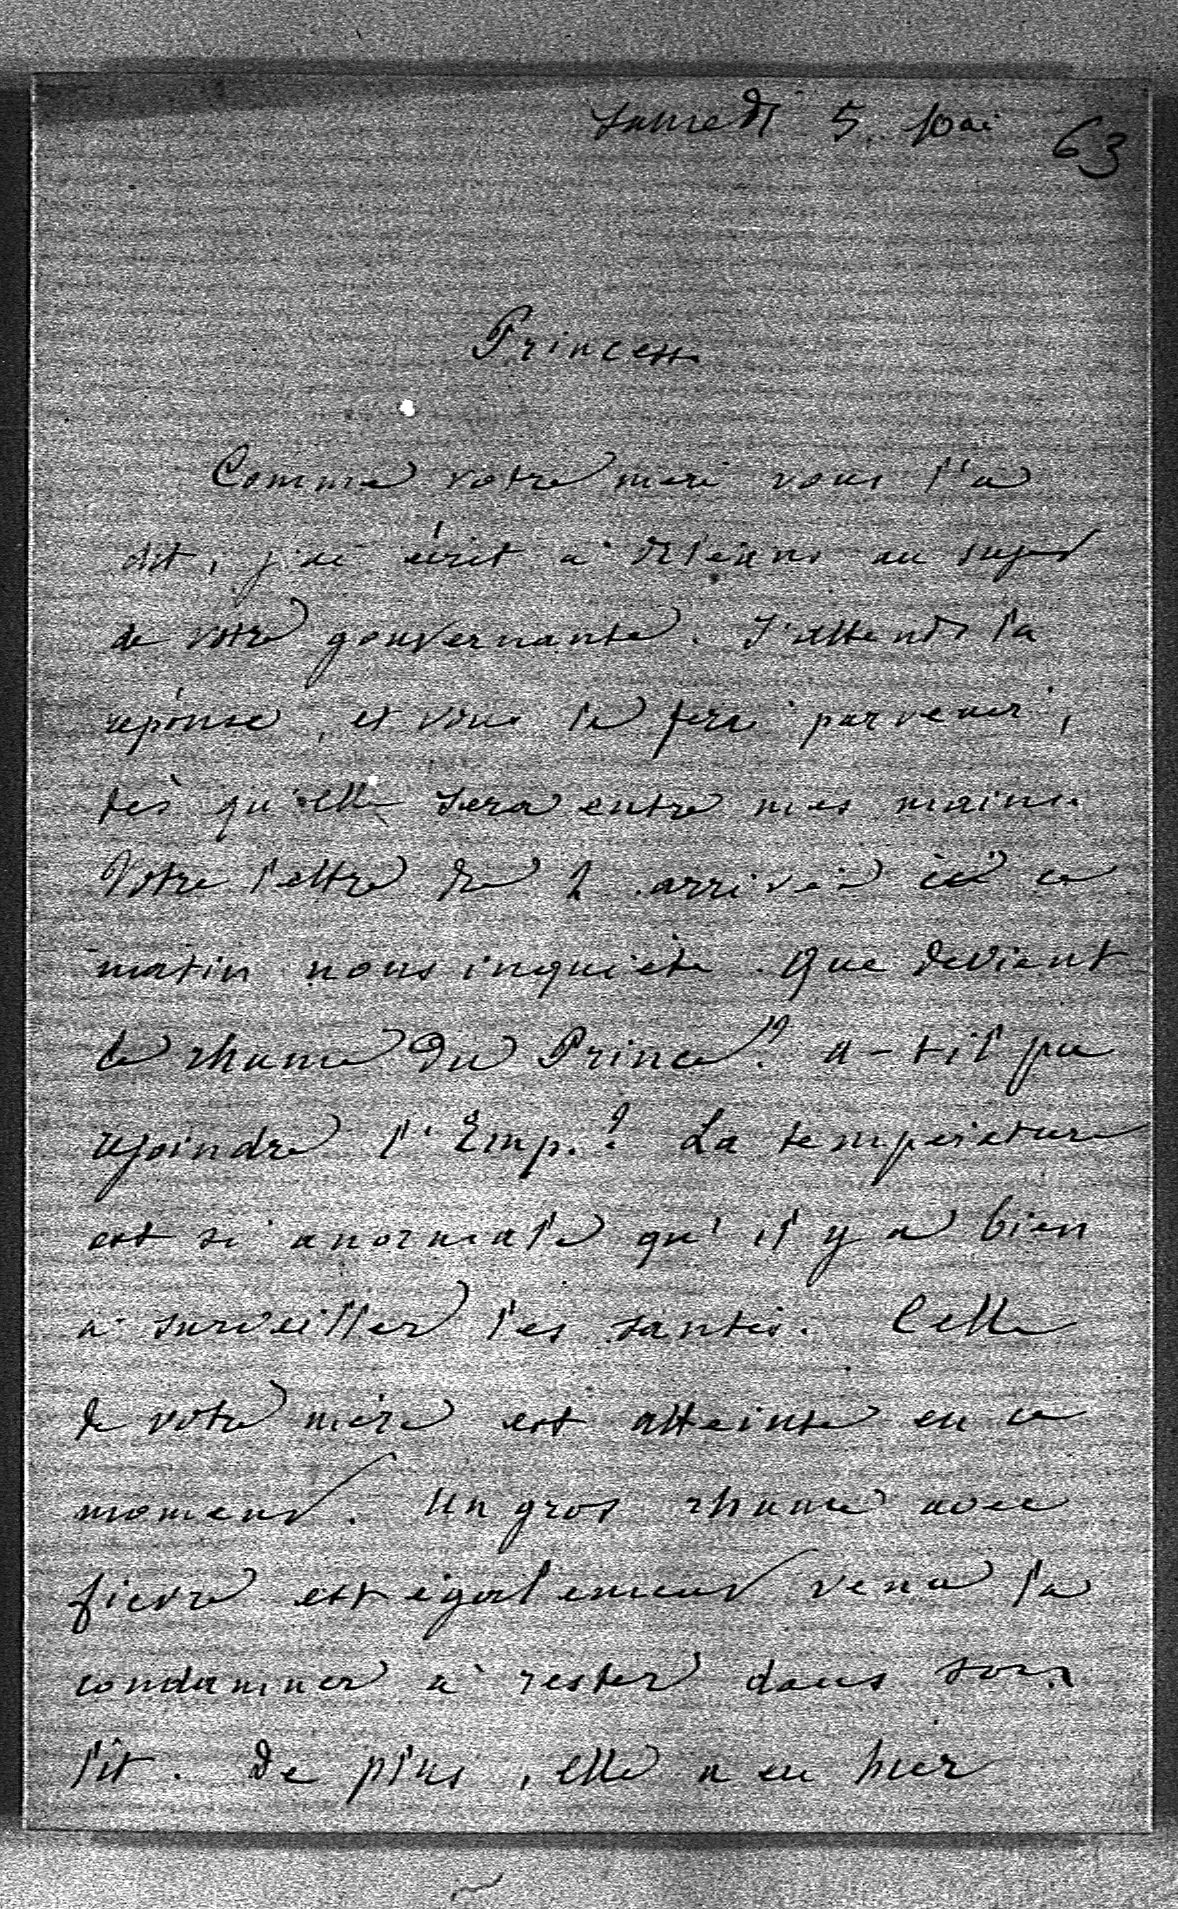 Samedi 5. Mai
63
Princesse
Comme votre mari vous l'a
dit, j'ai écrit à Orléans au sujet
de votre gouvernante. J'attends la
réponse, et vous la ferai parvenir,
dès qu'elle sera entre mes mains.
Votre lettre du 2 arrivée ici ce
matin nous inquiète. Que devient
le rhume du Prince? a-t-il pu
rejoindre l'Emp.? La température
est si anormale qu'il y a bien
à surveiller les santés. Celle
de votre mère est atteinte en ce
moment. Un gros rhume avec
fièvre est également venu la
condamner à rester dans son
lit. De plus, elle a eu hier